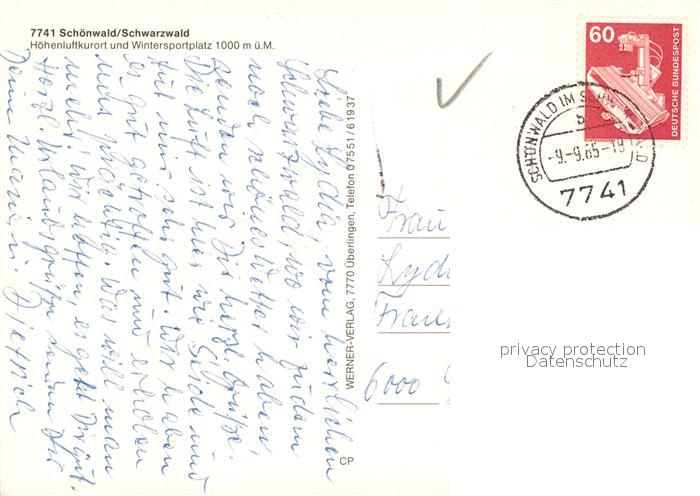 7741 Schönwald/Schwarzwald
Höhenluftkurort und Wintersportplatz 1000 m ü.M.
Liebe Lydia, vom herrlichen
Schwarzwald, wo wir zudem
noch schönes Wetter haben,
senden wir Dir herzl. Grüße.
Die Luft ist hier wie Seide und
tut mir sehr gut. Wir haben
es gut getroffen und erholen
uns prächtig. Was will man
mehr. Wir hoffen, es geht Dir gut.
Herzl. Urlaubsgrüße senden Dir
Deine
Dietrich
WERNER-VERLAG, 7770 Überlingen, Telefon 07551/61937
CP
60
DEUTSCHE BUNDESPOST
SCHÖNWALD IM SCHWARZWALD
b
-9.-9.85-18
7741
Frau
Lyd
6000
privacy protection
Datenschutz